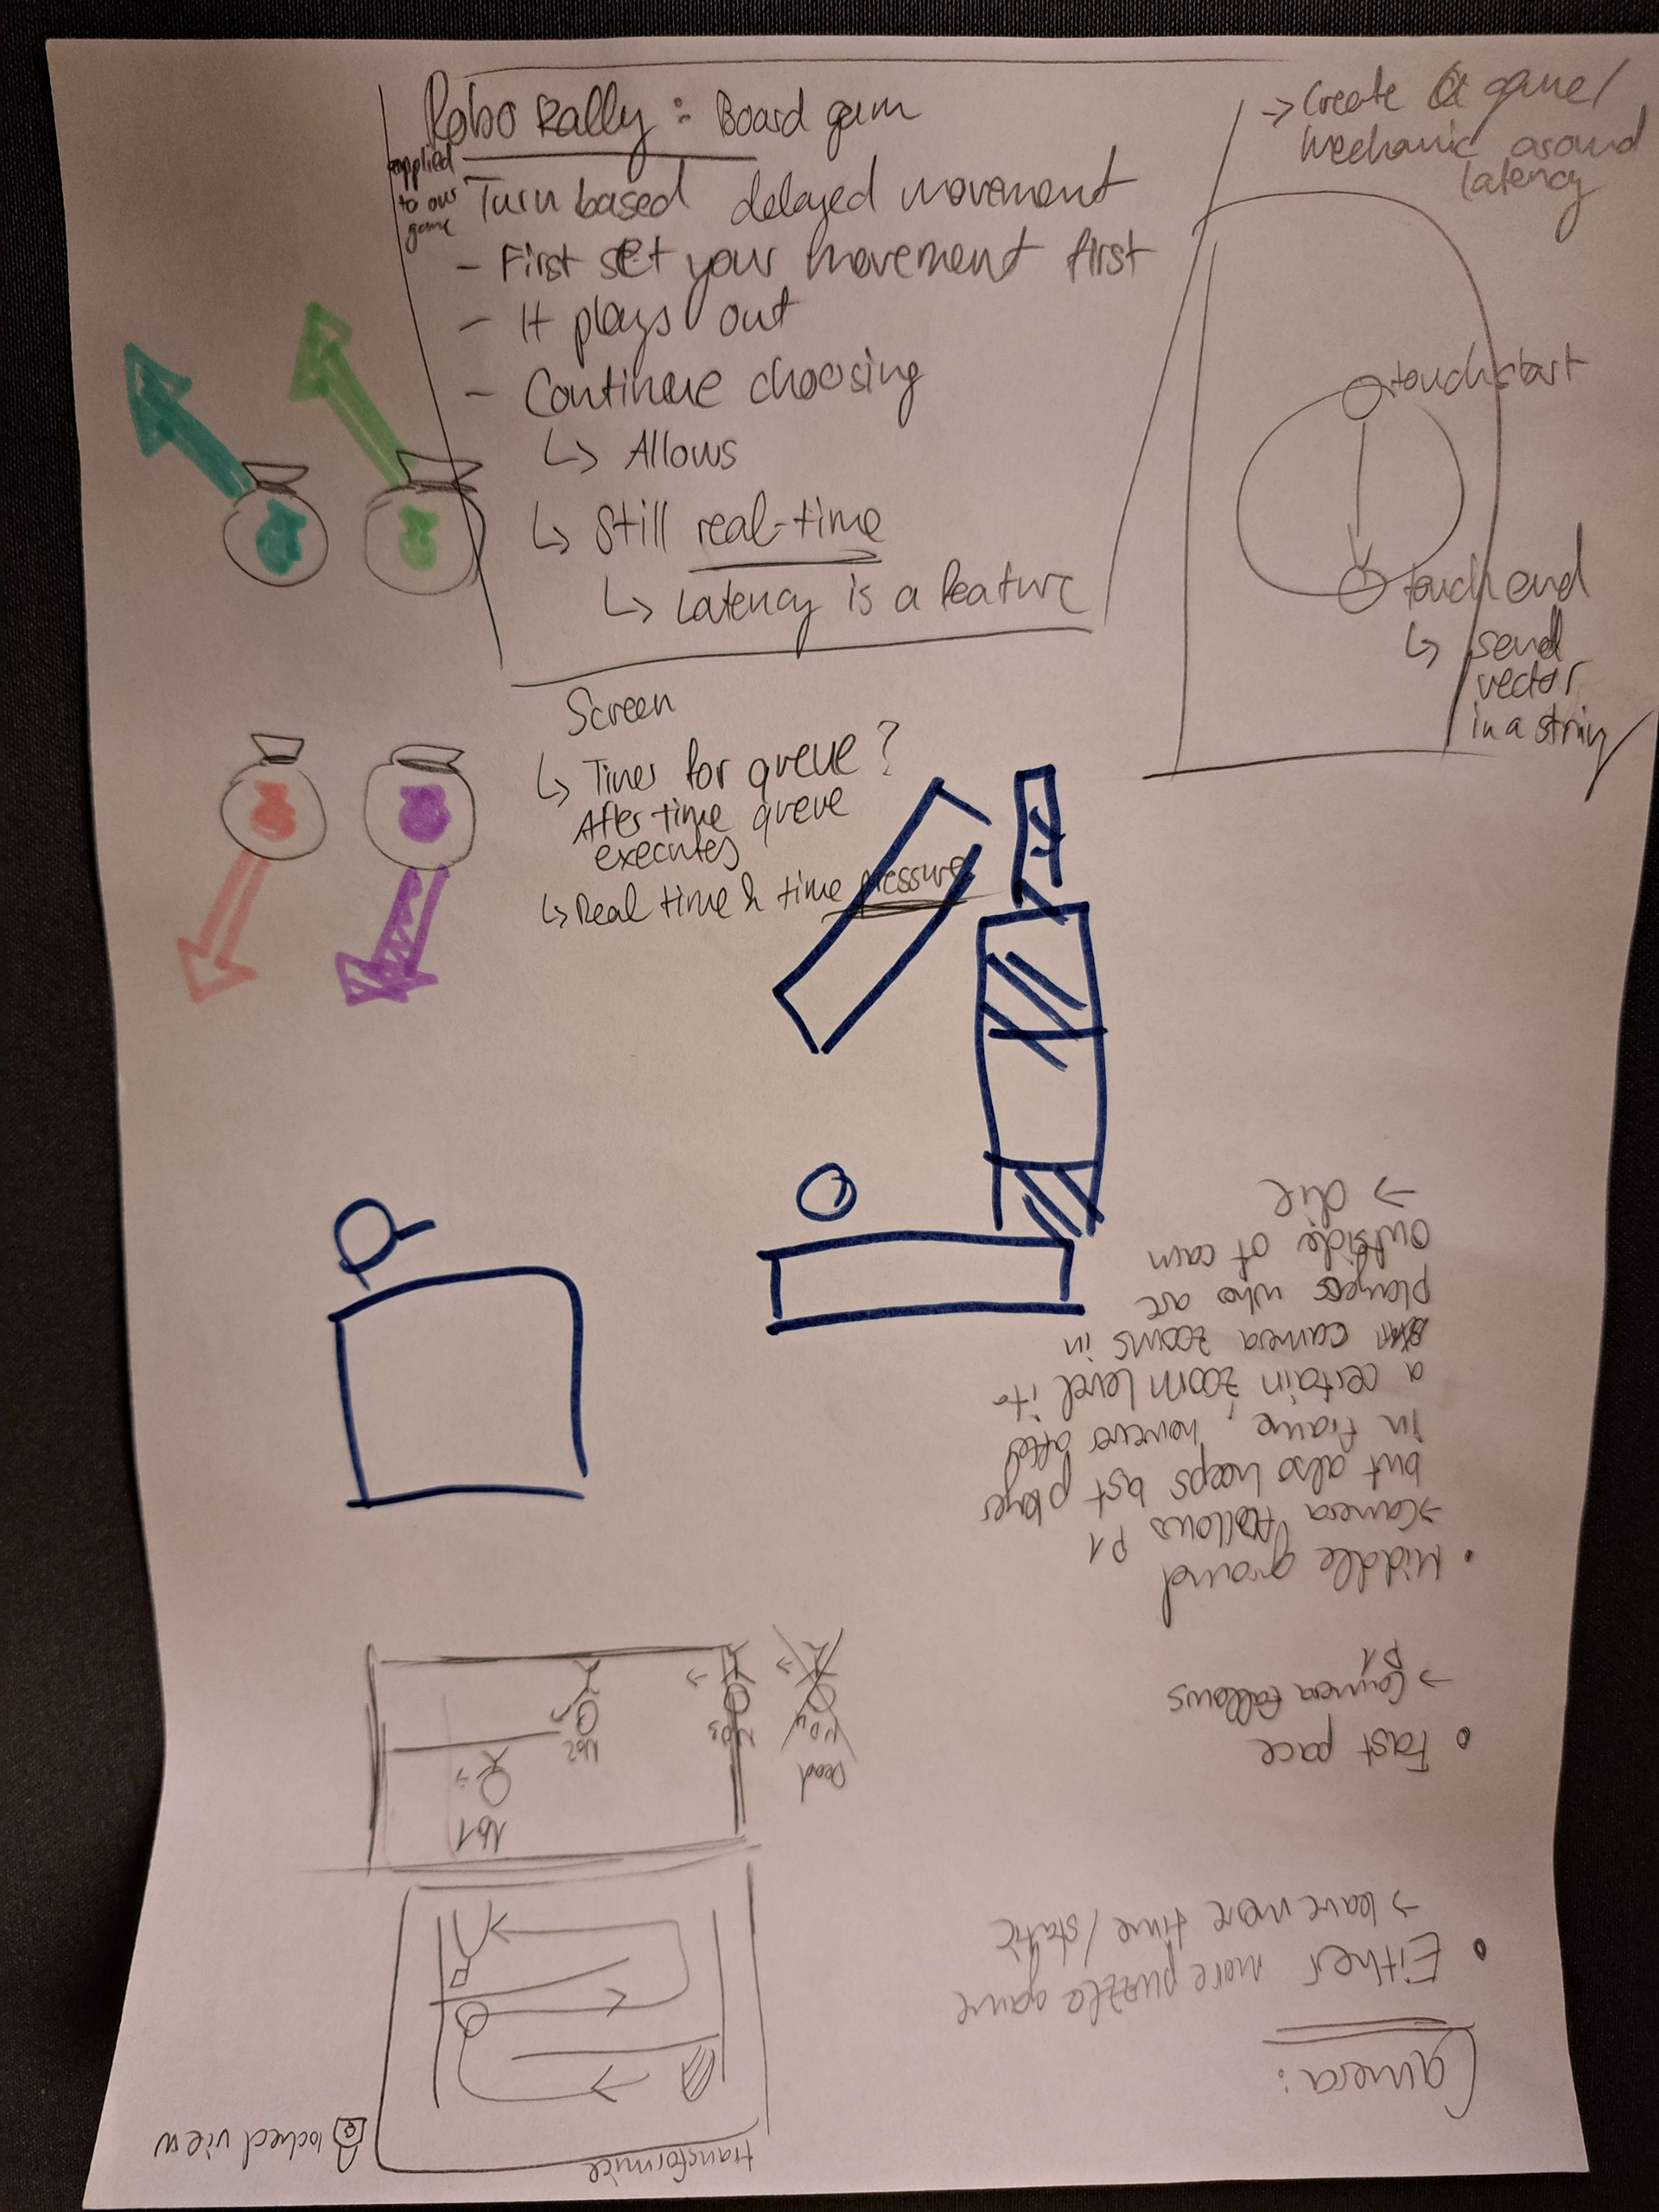 Robo Rally : Board gam
applied
to our
game
Turn based delayed movement
- First set your movement first
- It plays out
- Continue choosing
↳ Allows
↳ Still real-time
↳ Latency is a feature
→ Create a game/
mechanic around
latency
touch start
touch end
↳ send
vector
in a string
Screen
↳ Timer for queue?
After time queue
executes
↳ Real time & time pressure
Camera:
• Either more puzzle game
→ leave more time / static
• Fast pace
→ Camera follows
P1
• Middle ground
→ camera follows P1
but also keeps last player
in frame, however after
a certain zoom level it
camera zooms in
players who are
outside of cam
→ die
transformice
locked view
No1
No2
No3
No4
Dead